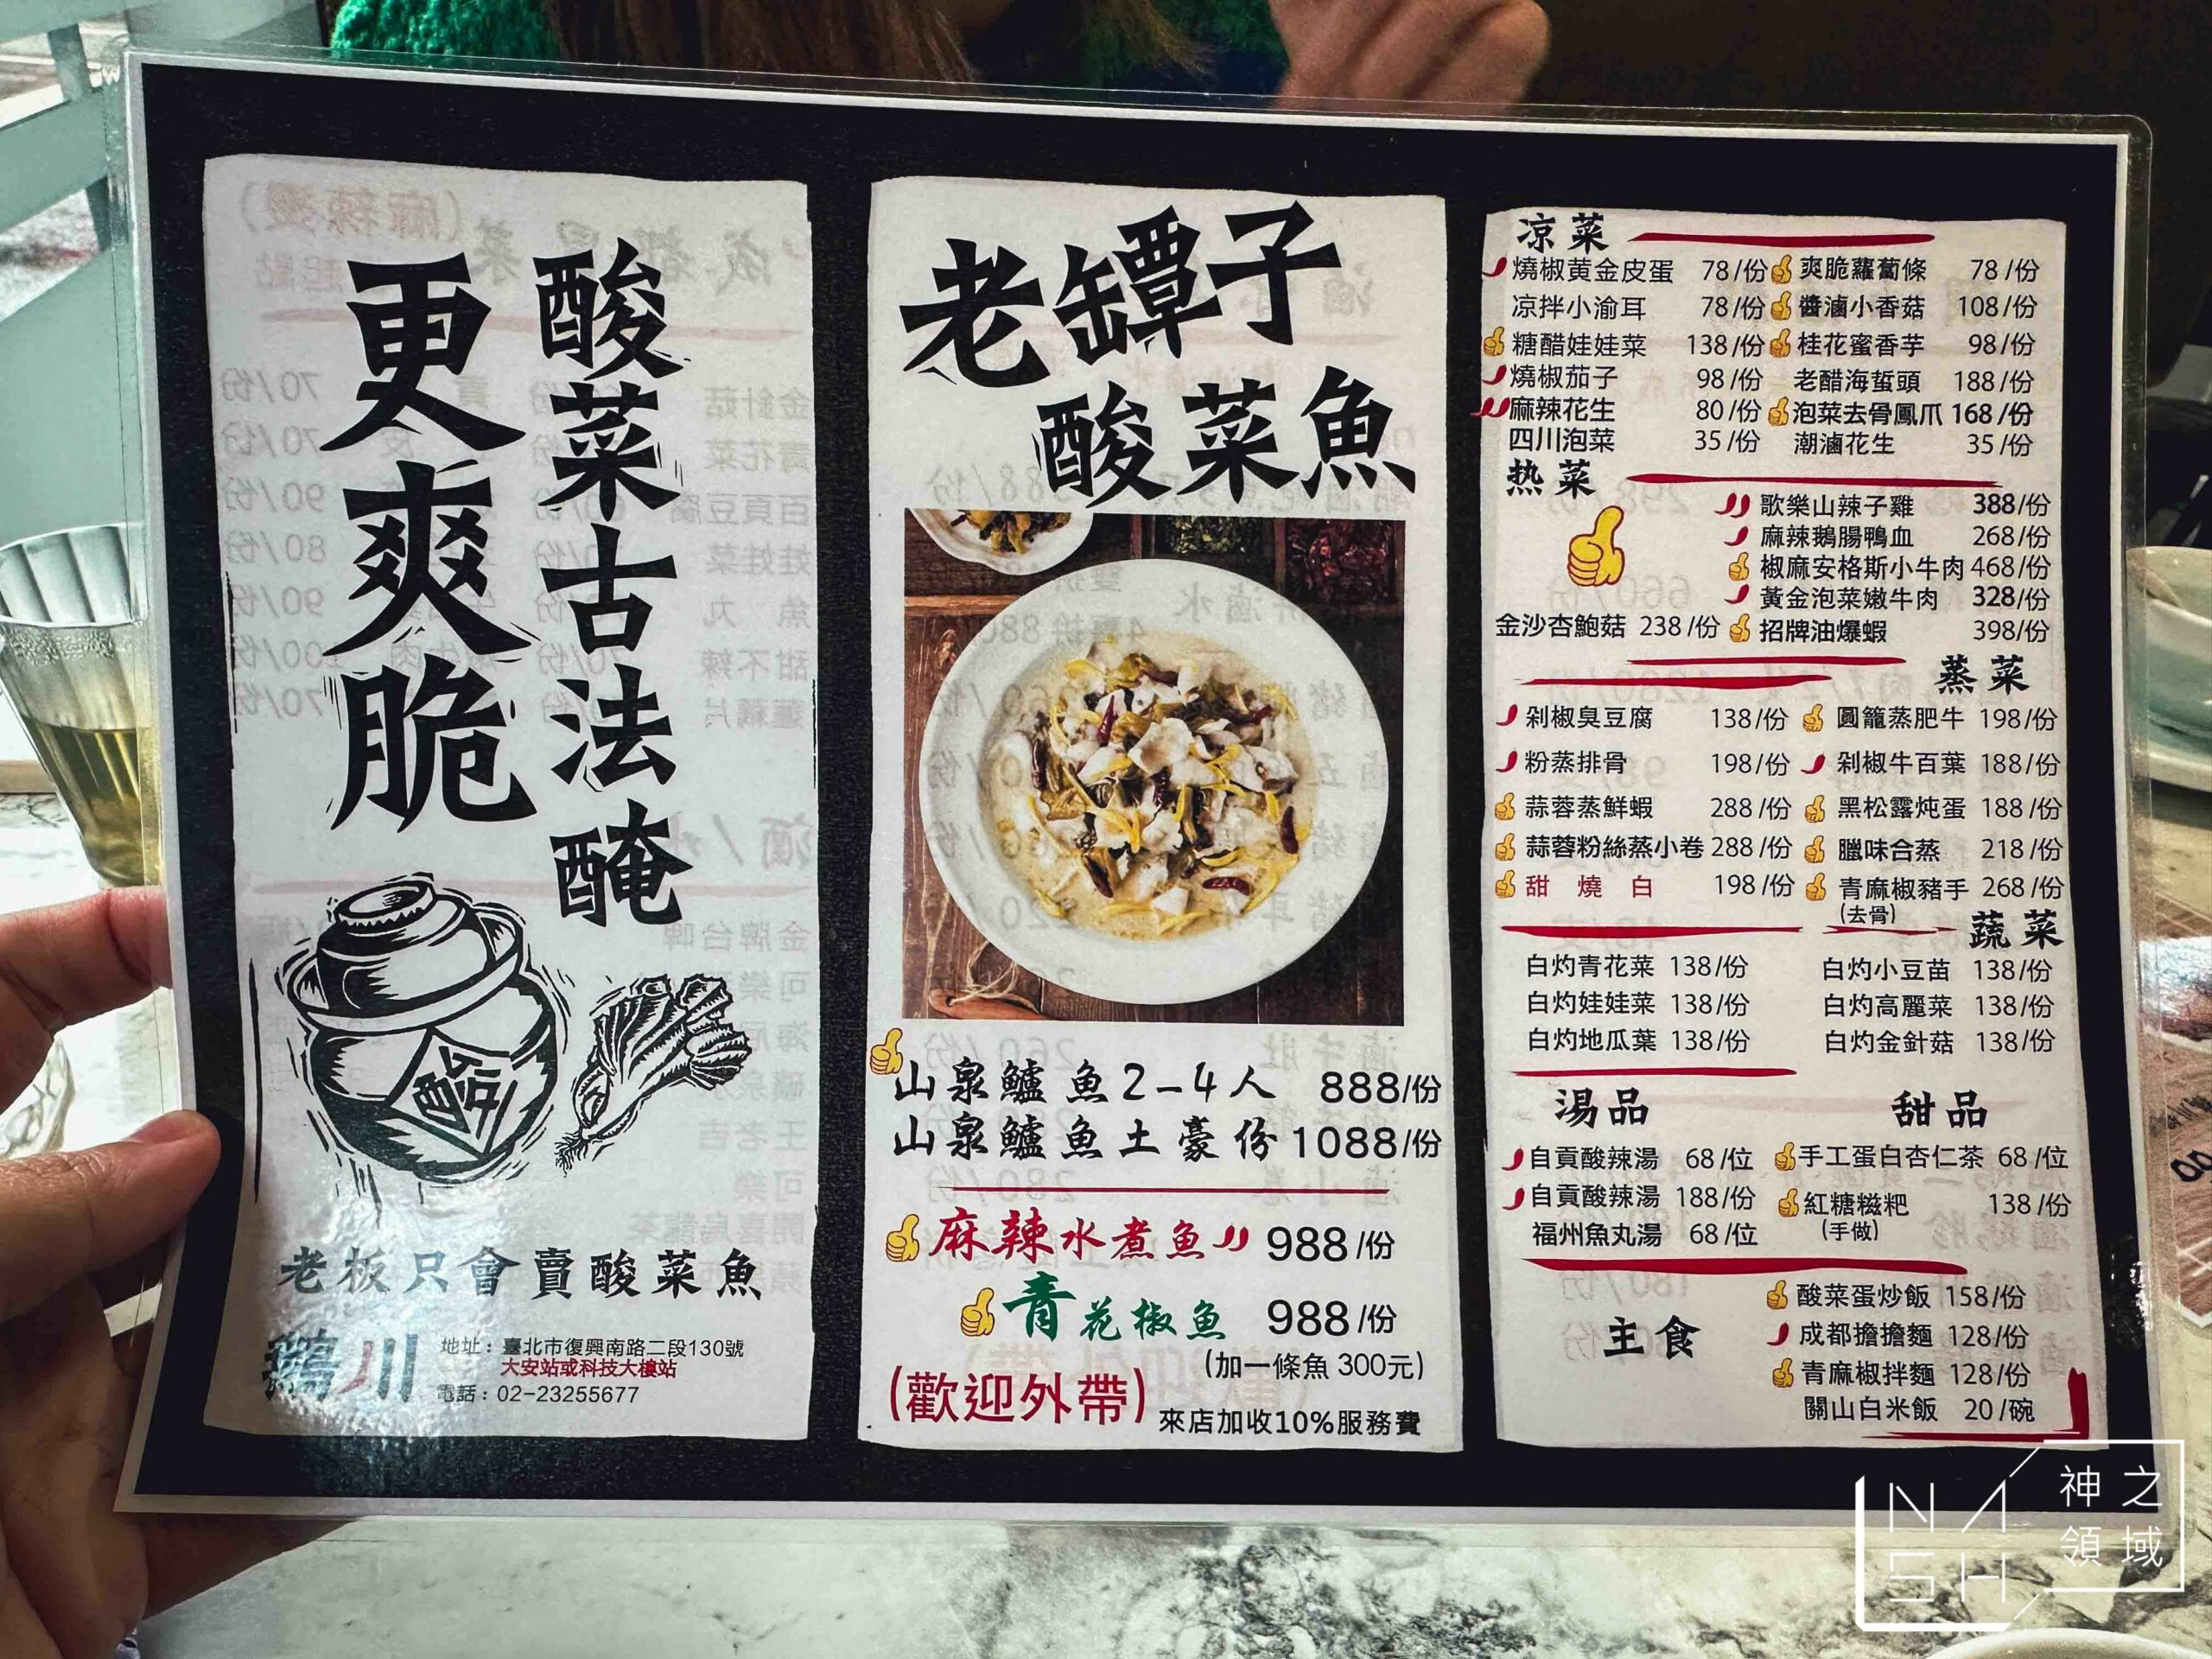 酸菜古法醃
更爽脆
老板只會賣酸菜魚
鵝川
地址：臺北市復興南路二段130號
大安站或科技大樓站
電話：02-23255677
老罈子
酸菜魚
山泉鱸魚2-4人 888/份
山泉鱸魚土豪份 1088/份
麻辣水煮魚 988/份
青花椒魚 988/份
(加一條魚 300元)
(歡迎外帶)
來店加收10%服務費
凉菜
燒椒黃金皮蛋 78/份 爽脆蘿蔔條 78/份
凉拌小渝耳 78/份 醬滷小香菇 108/份
糖醋娃娃菜 138/份 桂花蜜香芋 98/份
燒椒茄子 98/份 老醋海蜇頭 188/份
麻辣花生 80/份 泡菜去骨鳳爪 168/份
四川泡菜 35/份 潮滷花生 35/份
热菜
歌樂山辣子雞 388/份
麻辣鵝腸鴨血 268/份
椒麻安格斯小牛肉 468/份
黃金泡菜嫩牛肉 328/份
金沙杏鮑菇 238/份 招牌油爆蝦 398/份
蒸菜
剁椒臭豆腐 138/份 圓籠蒸肥牛 198/份
粉蒸排骨 198/份 剁椒牛百葉 188/份
蒜蓉蒸鮮蝦 288/份 黑松露炖蛋 188/份
蒜蓉粉絲蒸小卷 288/份 臘味合蒸 218/份
甜燒白 198/份 青麻椒豬手 268/份
(去骨)
蔬菜
白灼青花菜 138/份 白灼小豆苗 138/份
白灼娃娃菜 138/份 白灼高麗菜 138/份
白灼地瓜葉 138/份 白灼金針菇 138/份
湯品 甜品
自貢酸辣湯 68/位 手工蛋白杏仁茶 68/位
自貢酸辣湯 188/份 紅糖糍粑 138/份
福州魚丸湯 68/位 (手做)
主食
酸菜蛋炒飯 158/份
成都擔擔麵 128/份
青麻椒拌麵 128/份
關山白米飯 20/碗
NASH
神之領域